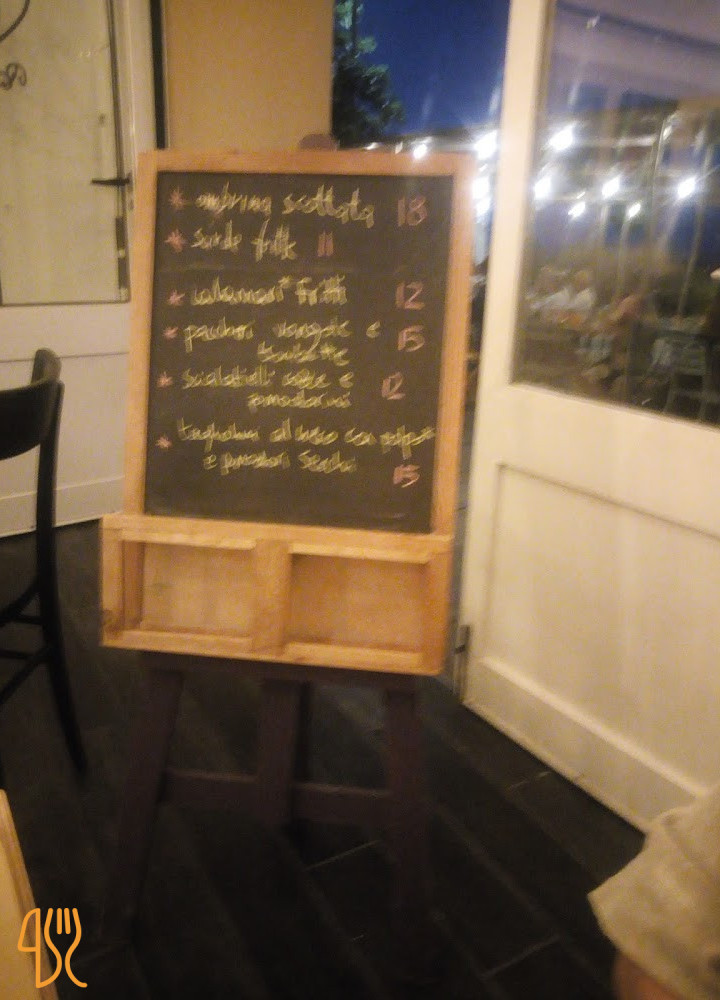 * ombrina scottata 18
* sarde fritte 11
* calamari fritti 12
* paccheri vongole e 15
* scialatielli e 12
pomodorini
* tagliolini al nero con polpo
e pomodori secchi 15